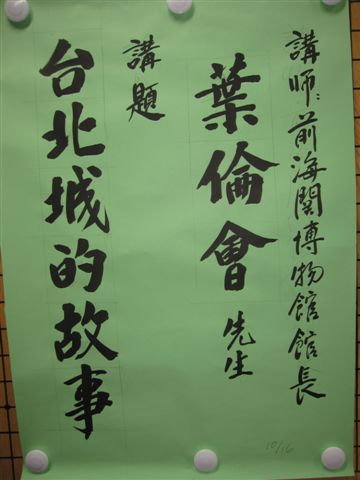 講師：前海關博物館館長
葉倫會先生
講題
台北城的故事
10/16